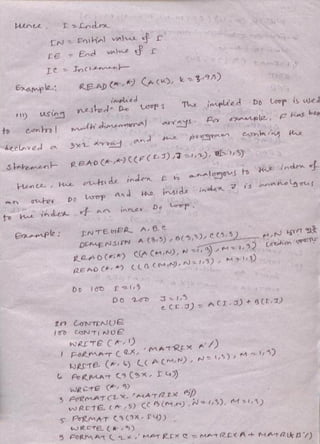 Hence, I = Index
IN = Initial value of I
IE = End value of I
Ie = Increment
Example: READ(*,*) (A(K), K=3,9,1)
iii) using nested implied Do Loop: The implied Do Loop is used
to control multi dimensional arrays. For example, F has been
declared a 3x2 array and the program containing the
statement READ(*,*)((F(I,J),J=1,3),
Hence, the outside index I is analogous to the index of
an outer Do Loop and the inside index J is analogous
to the index of an inner Do Loop.
Example: INTEGER A,B,C
DIMENSION A(3,3), B(3,3), C(3,3)
READ(*,*) ((A(M,N), N=1,3), M=1,3)
READ(*,*) ((B(M,N), N=1,3), M=1,3)
DO 100 I=1,3
DO 200 J=1,3
C(I,J) = A(I,J) + B(I,J)
200 CONTINUE
100 CONTINUE
WRITE(*,1)
1 FORMAT(2X, 'MATRIX A'/)
WRITE(*,6) ((A(M,N), N=1,3), M=1,3)
6 FORMAT(3(3X, I4))
WRITE(*,3)
3 FORMAT(2X, 'MATRIX B'/)
WRITE(*,5) ((B(M,N), N=1,3), M=1,3)
5 FORMAT(3(3X, I4))
WRITE(*,9)
9 FORMAT(2X, 'MATRIX C = MATRIX A + MATRIX B'/)